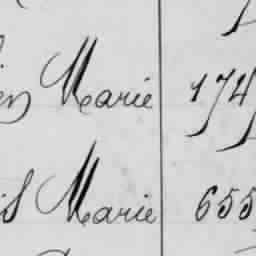 Marie 174
Marie 655